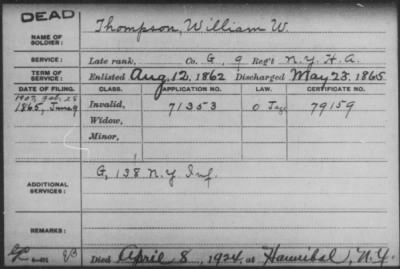 DEAD
NAME OF SOLDIER: Thompson, William W.
SERVICE: Late rank, Co. G, 9 Reg't N.Y. H.A.
TERM OF SERVICE: Enlisted Aug. 12, 1862 Discharged May 23, 1865
DATE OF FILING. CLASS. APPLICATION NO. LAW. CERTIFICATE NO.
1907, Feb. 25
1865, June 9 Invalid, 71353 79159
Widow,
Minor,
ADDITIONAL SERVICES: G, 138 N.Y. Inf.
REMARKS:
Died April 8, 1924, at Hannibal, N.Y.